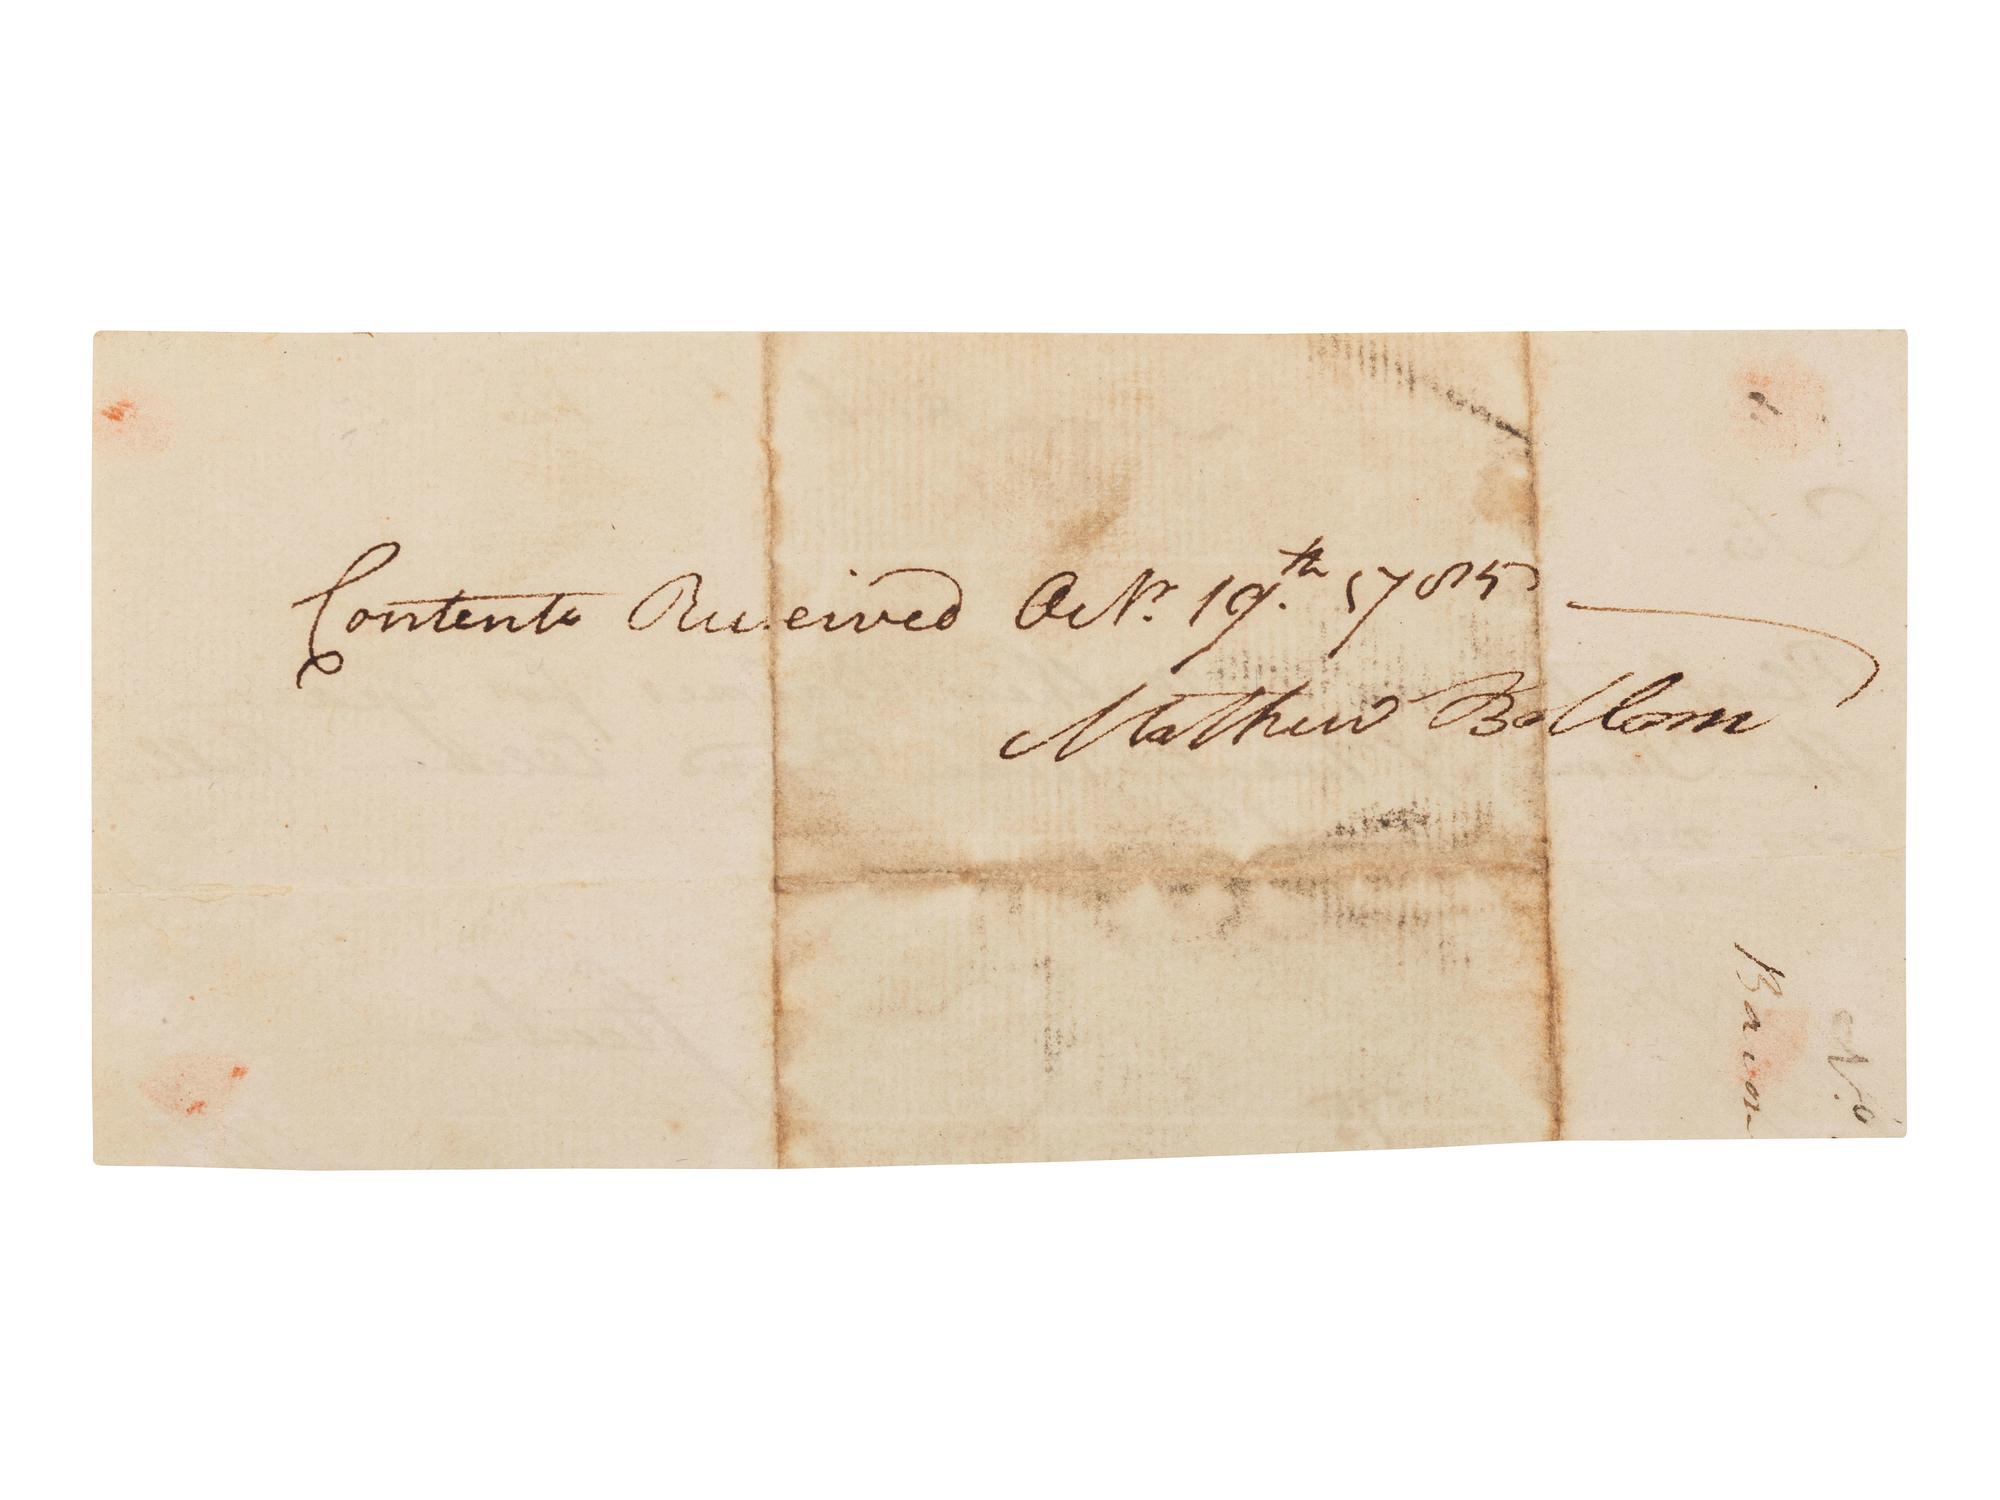 Contents Received Octr. 19th. 1785
Mathew Bollom
Bacon
No.